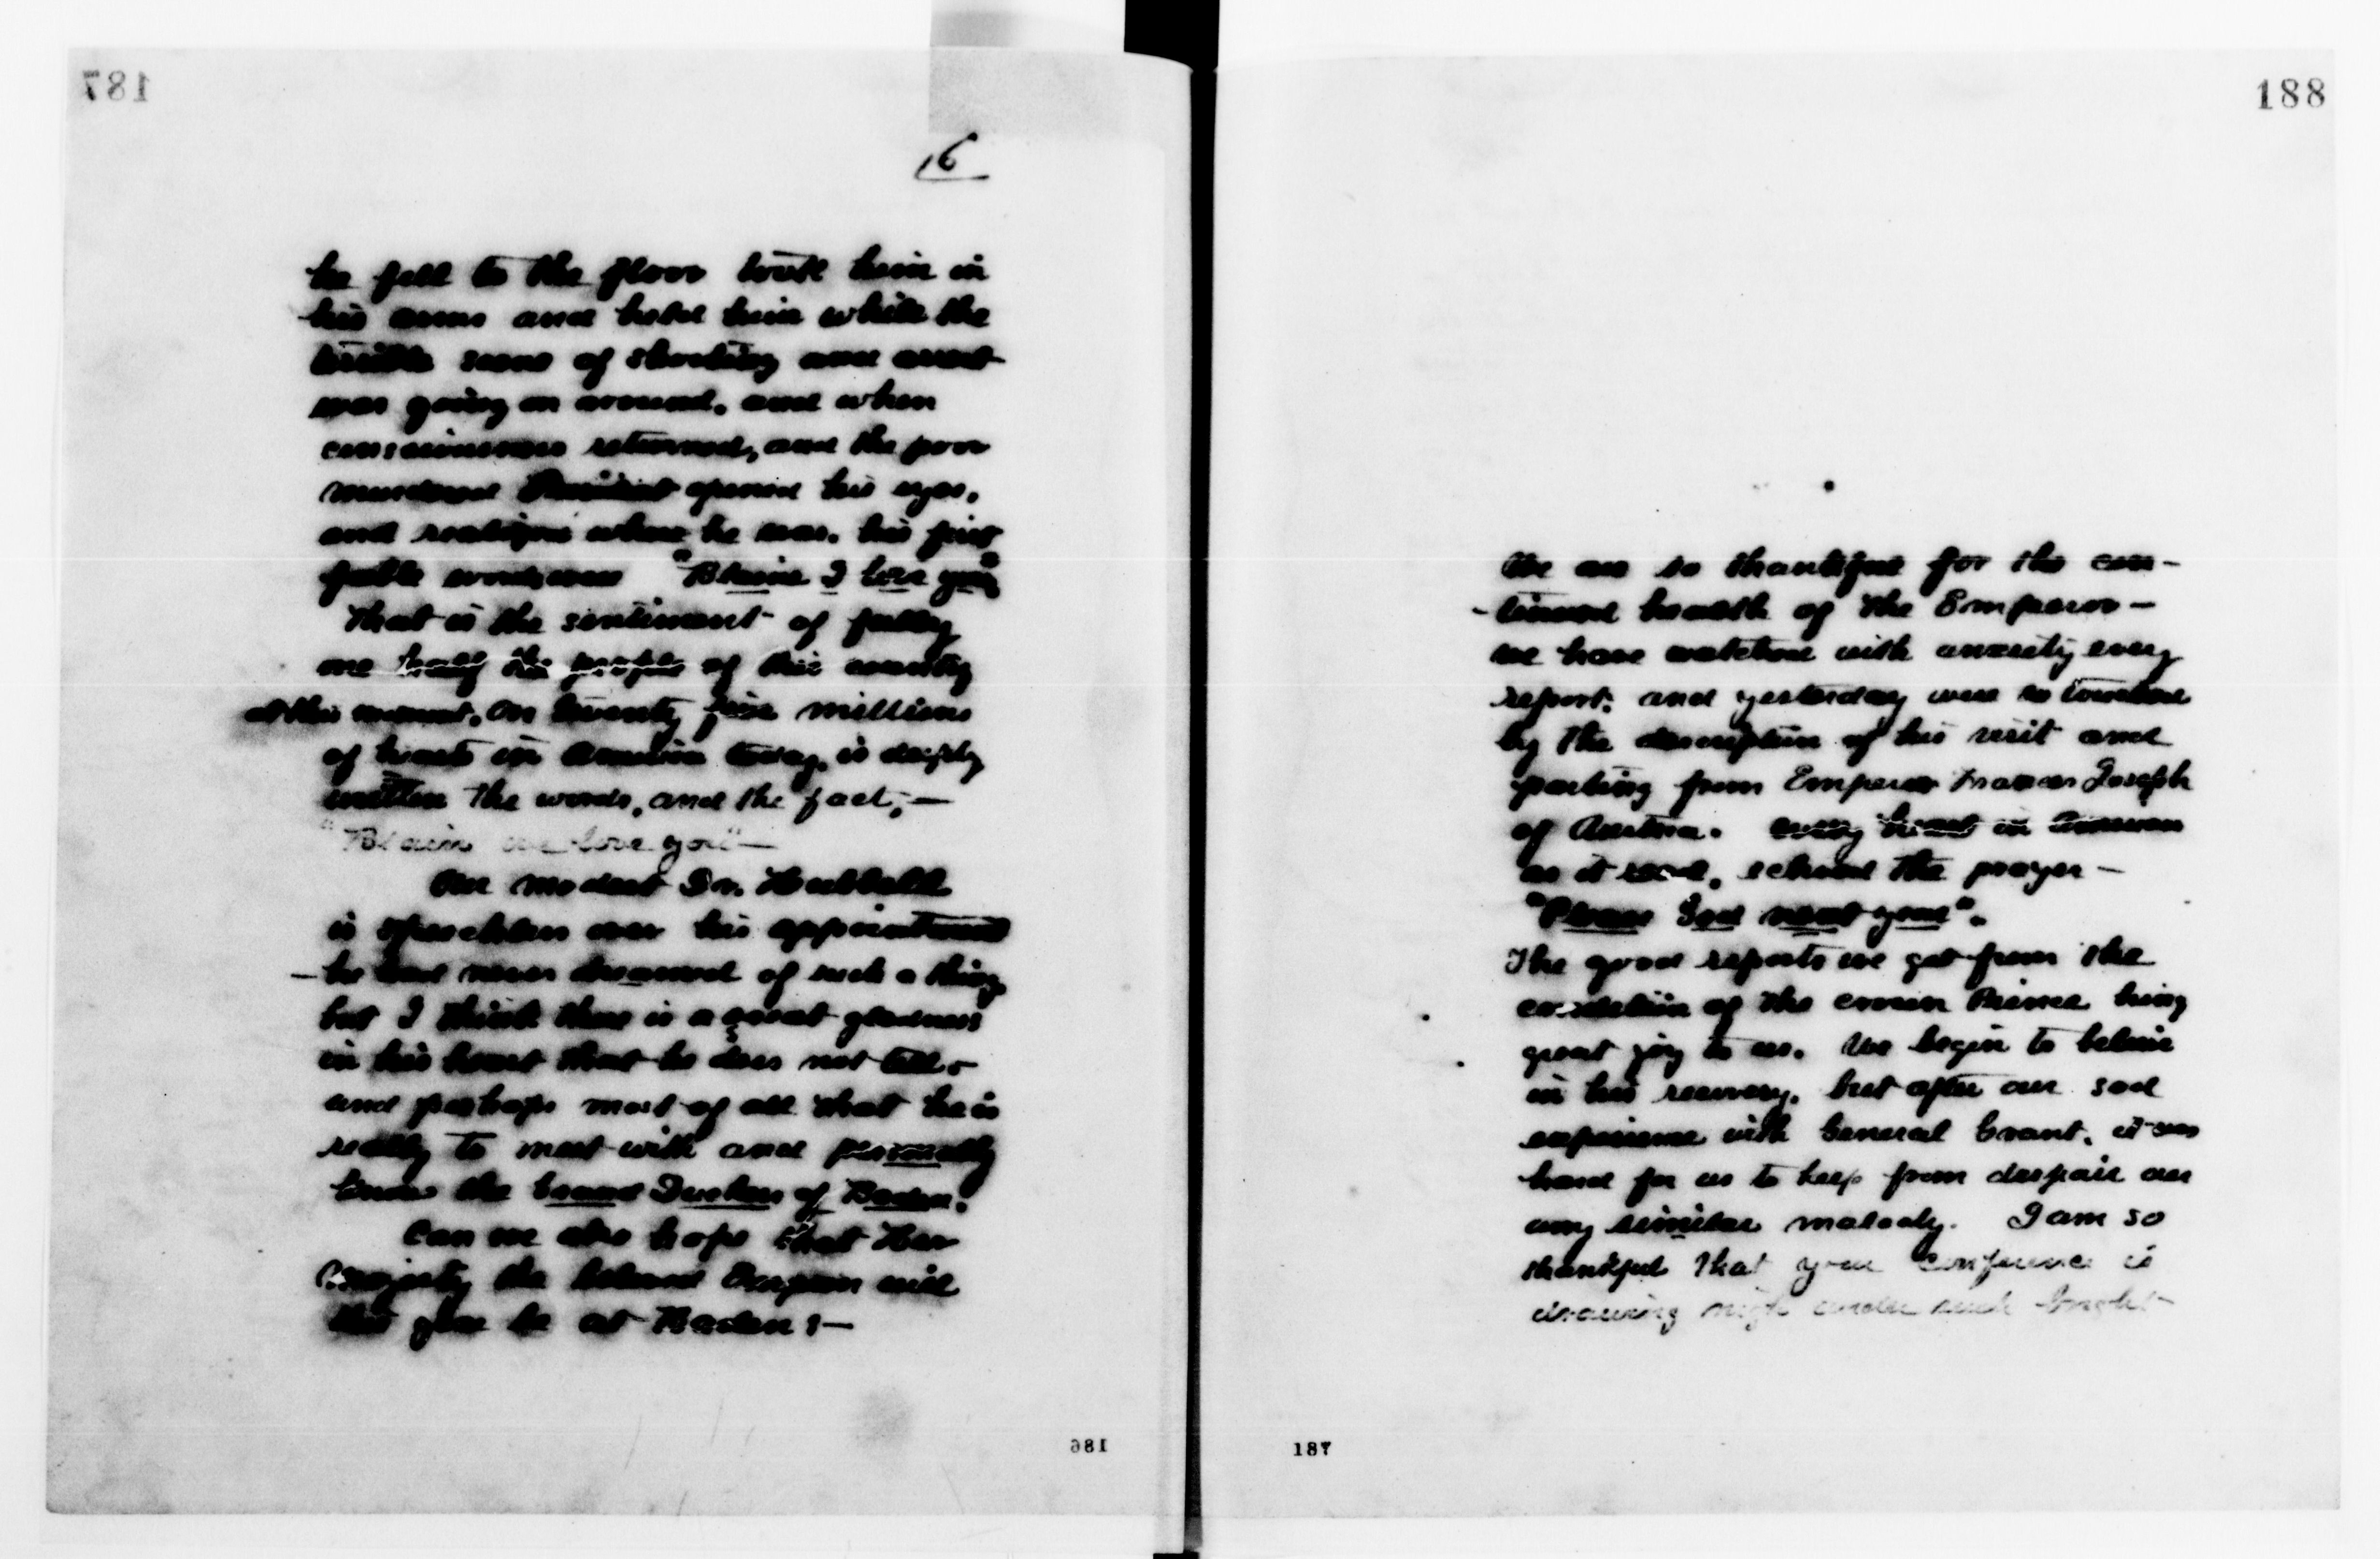 187
16
he fell to the floor took him in
his arms and held him while the
terrible scene of shooting and arrest
was going on around, and when
consciousness returned, and the poor
murdered President opened his eyes,
and realizing where he was, his first
feeble words were "Blaine I love you"
That is the sentiment of fully
one half the people of this country
at this moment. On twenty five millions
of hearts in America today, is deeply
written the words, and the fact, —
"Blaine we love you" —
Our modest Dr. Hubbell
is speechless over his appointment
- he had never dreamed of such a thing
but I think there is a great gladness
in his heart that he does not tell,
and perhaps most of all that he is
really to meet with and personally
know the Grand Duchess of Baden.
Can we also hope that Her
Majesty the beloved Empress will
this year be at Baden? —
186
188
We are so thankful for the con-
-tinued health of the Emperor —
we have watched with anxiety every
report; and yesterday were so touched
by the description of his visit and
parting from Emperor Frances Joseph
of Austria. every heart in American
as it read, echoed the prayer —
"Please God next year".
The good reports we get from the
condition of the crown Prince bring
great joy to us. We begin to believe
in his recovery, but after our sad
experience with General Grant, it was
hard for us to keep from despair over
any similar malady. I am so
thankful that your Conference is
drawing nigh under such bright
187